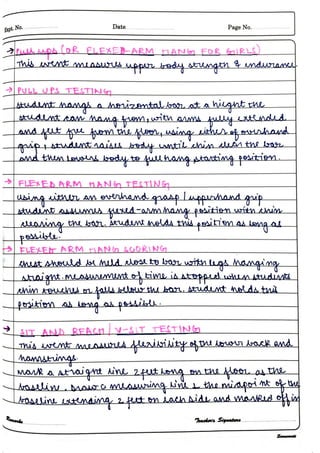 Expt. No. Date Page No.
→ Pull ups (OR FLEXED-ARM HANG FOR GIRLS)
This event measures upper body strength & endurance
→ PULL UPS TESTING
student hangs a horizontal bar at a hieght the
student can hang from, with arms fully extended
and feet free from the floor, using either of overhand
grip, student raises body until chin clear the bar
and then lowers body to full hang starting position.
→ FLEXED ARM HANG TESTING
using either an overhand grasp / upperhand grip
student assumes flexed-arm hang position with chin
clearing the bar. student holds this position as long as
possible.
→ FLEXED ARM HANG SCORING
chest should be held close to bar with legs hanging
straight. measurement of time is stopped when students
chin touches or falls below the bar. student holds this
position as long as possible.
→ SIT AND REACH / V-SIT TESTING
This event measures flexibility of the lower back and
hamstrings.
mark a straight line 2 feet long on the floor as the
baseline. Draw a measuring line ⊥ the midpoint of the
baseline extending 2 feet on each side and marked off in
Remarks Teacher's Signature